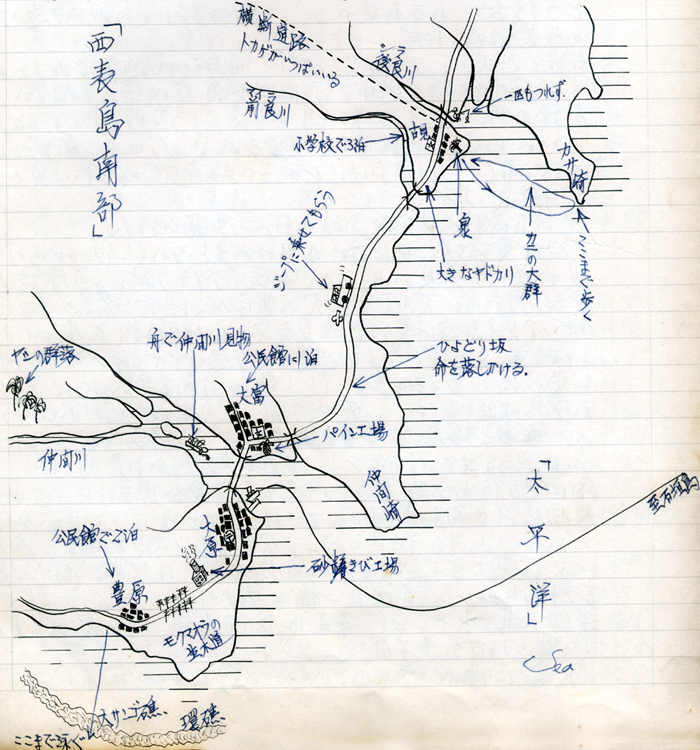 「西表島南部」
横断道路
トカゲがいっぱいいる
後良川
前良川
小学校で3泊
古見
一匹もつれず.
カサ崎
ここまで歩く
カニの大群
泉
大きなヤドカリ
ジープに乗せてもらう
ひよどり坂
命を落しかける.
舟で仲間川見物
公民館に1泊
大富
パイン工場
ヤシの群落
仲間川
仲間崎
「太平洋」
Sea
至石垣島
公民館で2泊
大原
豊原
砂糖きび工場
モクマオウの
並木道
大サンゴ礁.
環礁.
ここまで泳ぐ